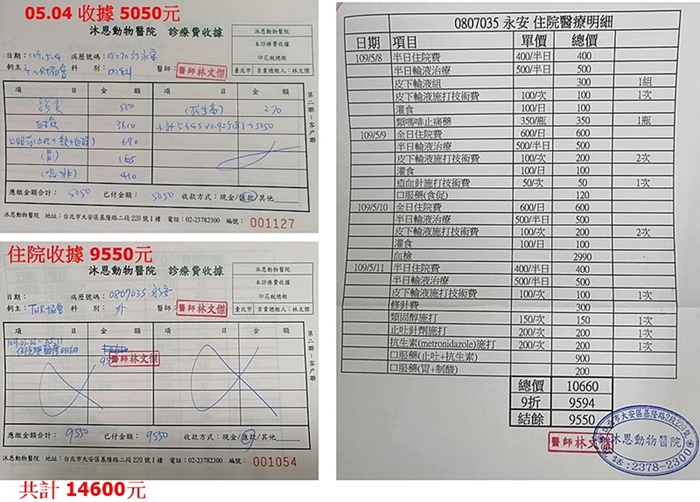 05.04 收據 5050元
沐恩動物醫院 診療費收據
沐恩動物醫院
本診療費收據
印花稅總繳
臺北市 負責總繳人:林文傑
醫師林文傑
日期:109.5.4 病歷號碼:0807035永安
飼主: 科別:內科 醫師:
項目 金額 項目 金額
診察 550 270
血檢 3610
690
(胃) 165
410
應繳金額合計:5050 已付金額:5050 收款方式:現金/匯款/其他
沐恩動物醫院 地址:台北市大安區基隆路二段220號1樓 電話:02-23782300 編號:001127
第二聯:客戶聯
住院收據 9550元
沐恩動物醫院 診療費收據
沐恩動物醫院
本診療費收據
印花稅總繳
臺北市 負責總繳人:林文傑
日期: 病歷號碼:0807035 永安
飼主:TNR協會 科別:外 醫師:醫師林文傑
項目 金額 項目 金額
醫師林文傑
應繳金額合計:9550 已付金額:9550 收款方式:現金/匯款/其他
沐恩動物醫院 地址:台北市大安區基隆路二段220號1樓 電話:02-23782300 編號:001054
第二聯:客戶聯
共計 14600元
0807035 永安 住院醫療明細
日期 項目 單價 總價
109/5/8 半日住院費 400/半日 400
半日輸液治療 500/半日 500
皮下輸液組 300 1組
皮下輸液施打技術費 100/次 100 1次
灌食 100/日 100
類嗎啡止痛藥 350/瓶 350 1瓶
109/5/9 全日住院費 600/日 600
半日輸液治療 500/半日 500
皮下輸液施打技術費 100/次 200 2次
灌食 100/日 100
造血針施打技術費 50/次 50 1次
口服藥(食促) 120
109/5/10 全日住院費 600/日 600
半日輸液治療 500/半日 500
皮下輸液施打技術費 100/次 200 2次
灌食 100/日 100
血檢 2990
109/5/11 半日住院費 400/半日 400
半日輸液治療 500/半日 500
皮下輸液施打技術費 100/次 100 1次
修針費 300
類固醇施打 150/次 150 1次
止吐針劑施打 200/次 200 1次
抗生素(metronidazole)施打 200/次 200 1次
口服藥(止吐+抗生素) 900
口服藥(胃+制酸) 200
總價 10660
9折 9594
結餘 9550
醫師林文傑
台北市大安區基隆路2段220號
沐恩動物醫院
電話:2378-2300